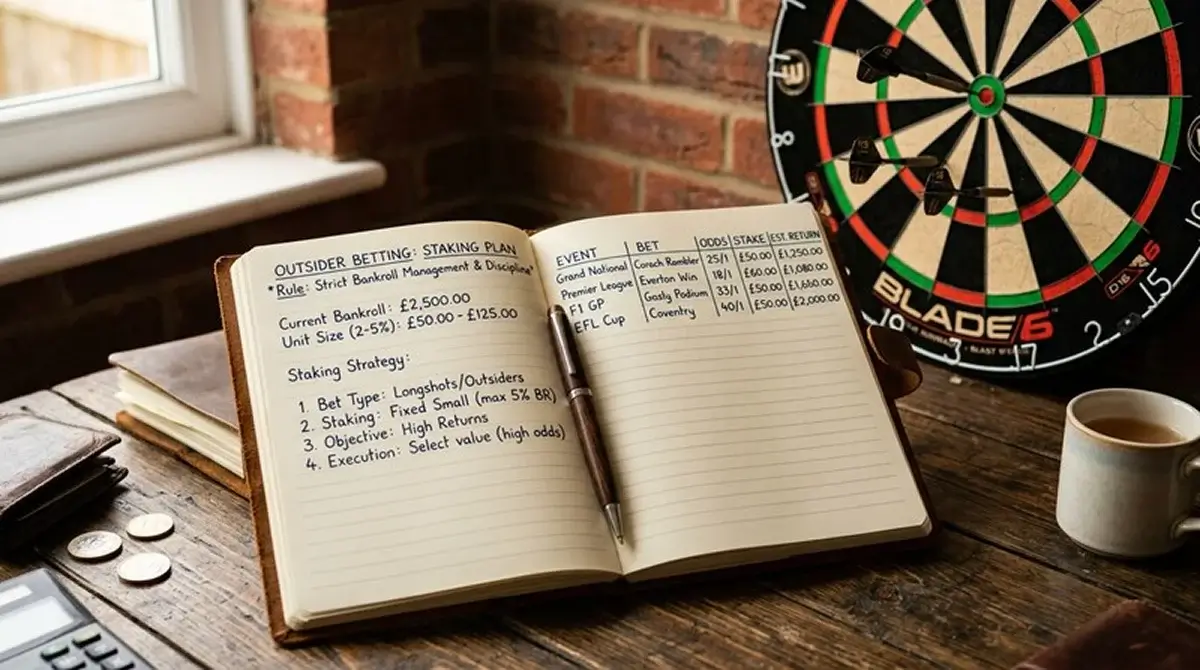 OUTSIDER BETTING: STAKING PLAN
*Rule: Strict Bankroll Management & Discipline*
Current Bankroll: £2,500.00
Unit Size (2-5%): £50.00 - £125.00
Staking Strategy:
1. Bet Type: Longshots/Outsiders
2. Staking: Fixed Small (max 5% BR)
3. Objective: High Returns
4. Execution: Select value (high odds)
EVENT BET ODDS STAKE EST. RETURN
Grand National Corach Rambler 25/1 £50.00 £1,250.00
Premier League Everton Win 18/1 £60.00 £1,080.00
F1 GP Gasly Podium 33/1 £50.00
EFL Cup Coventry 40/1 £50.00 £2,000.00
8
10
15
BLADE/6
19 3 17 2